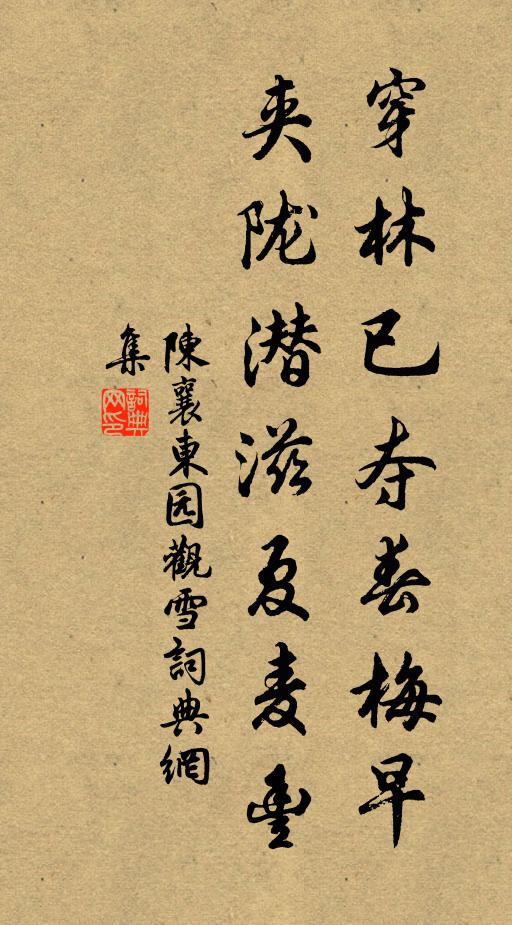 穿林已夺春梅早
夹陇潜滋夏麦豐
陳襄東园觀雪詞典網
集
詞典网印